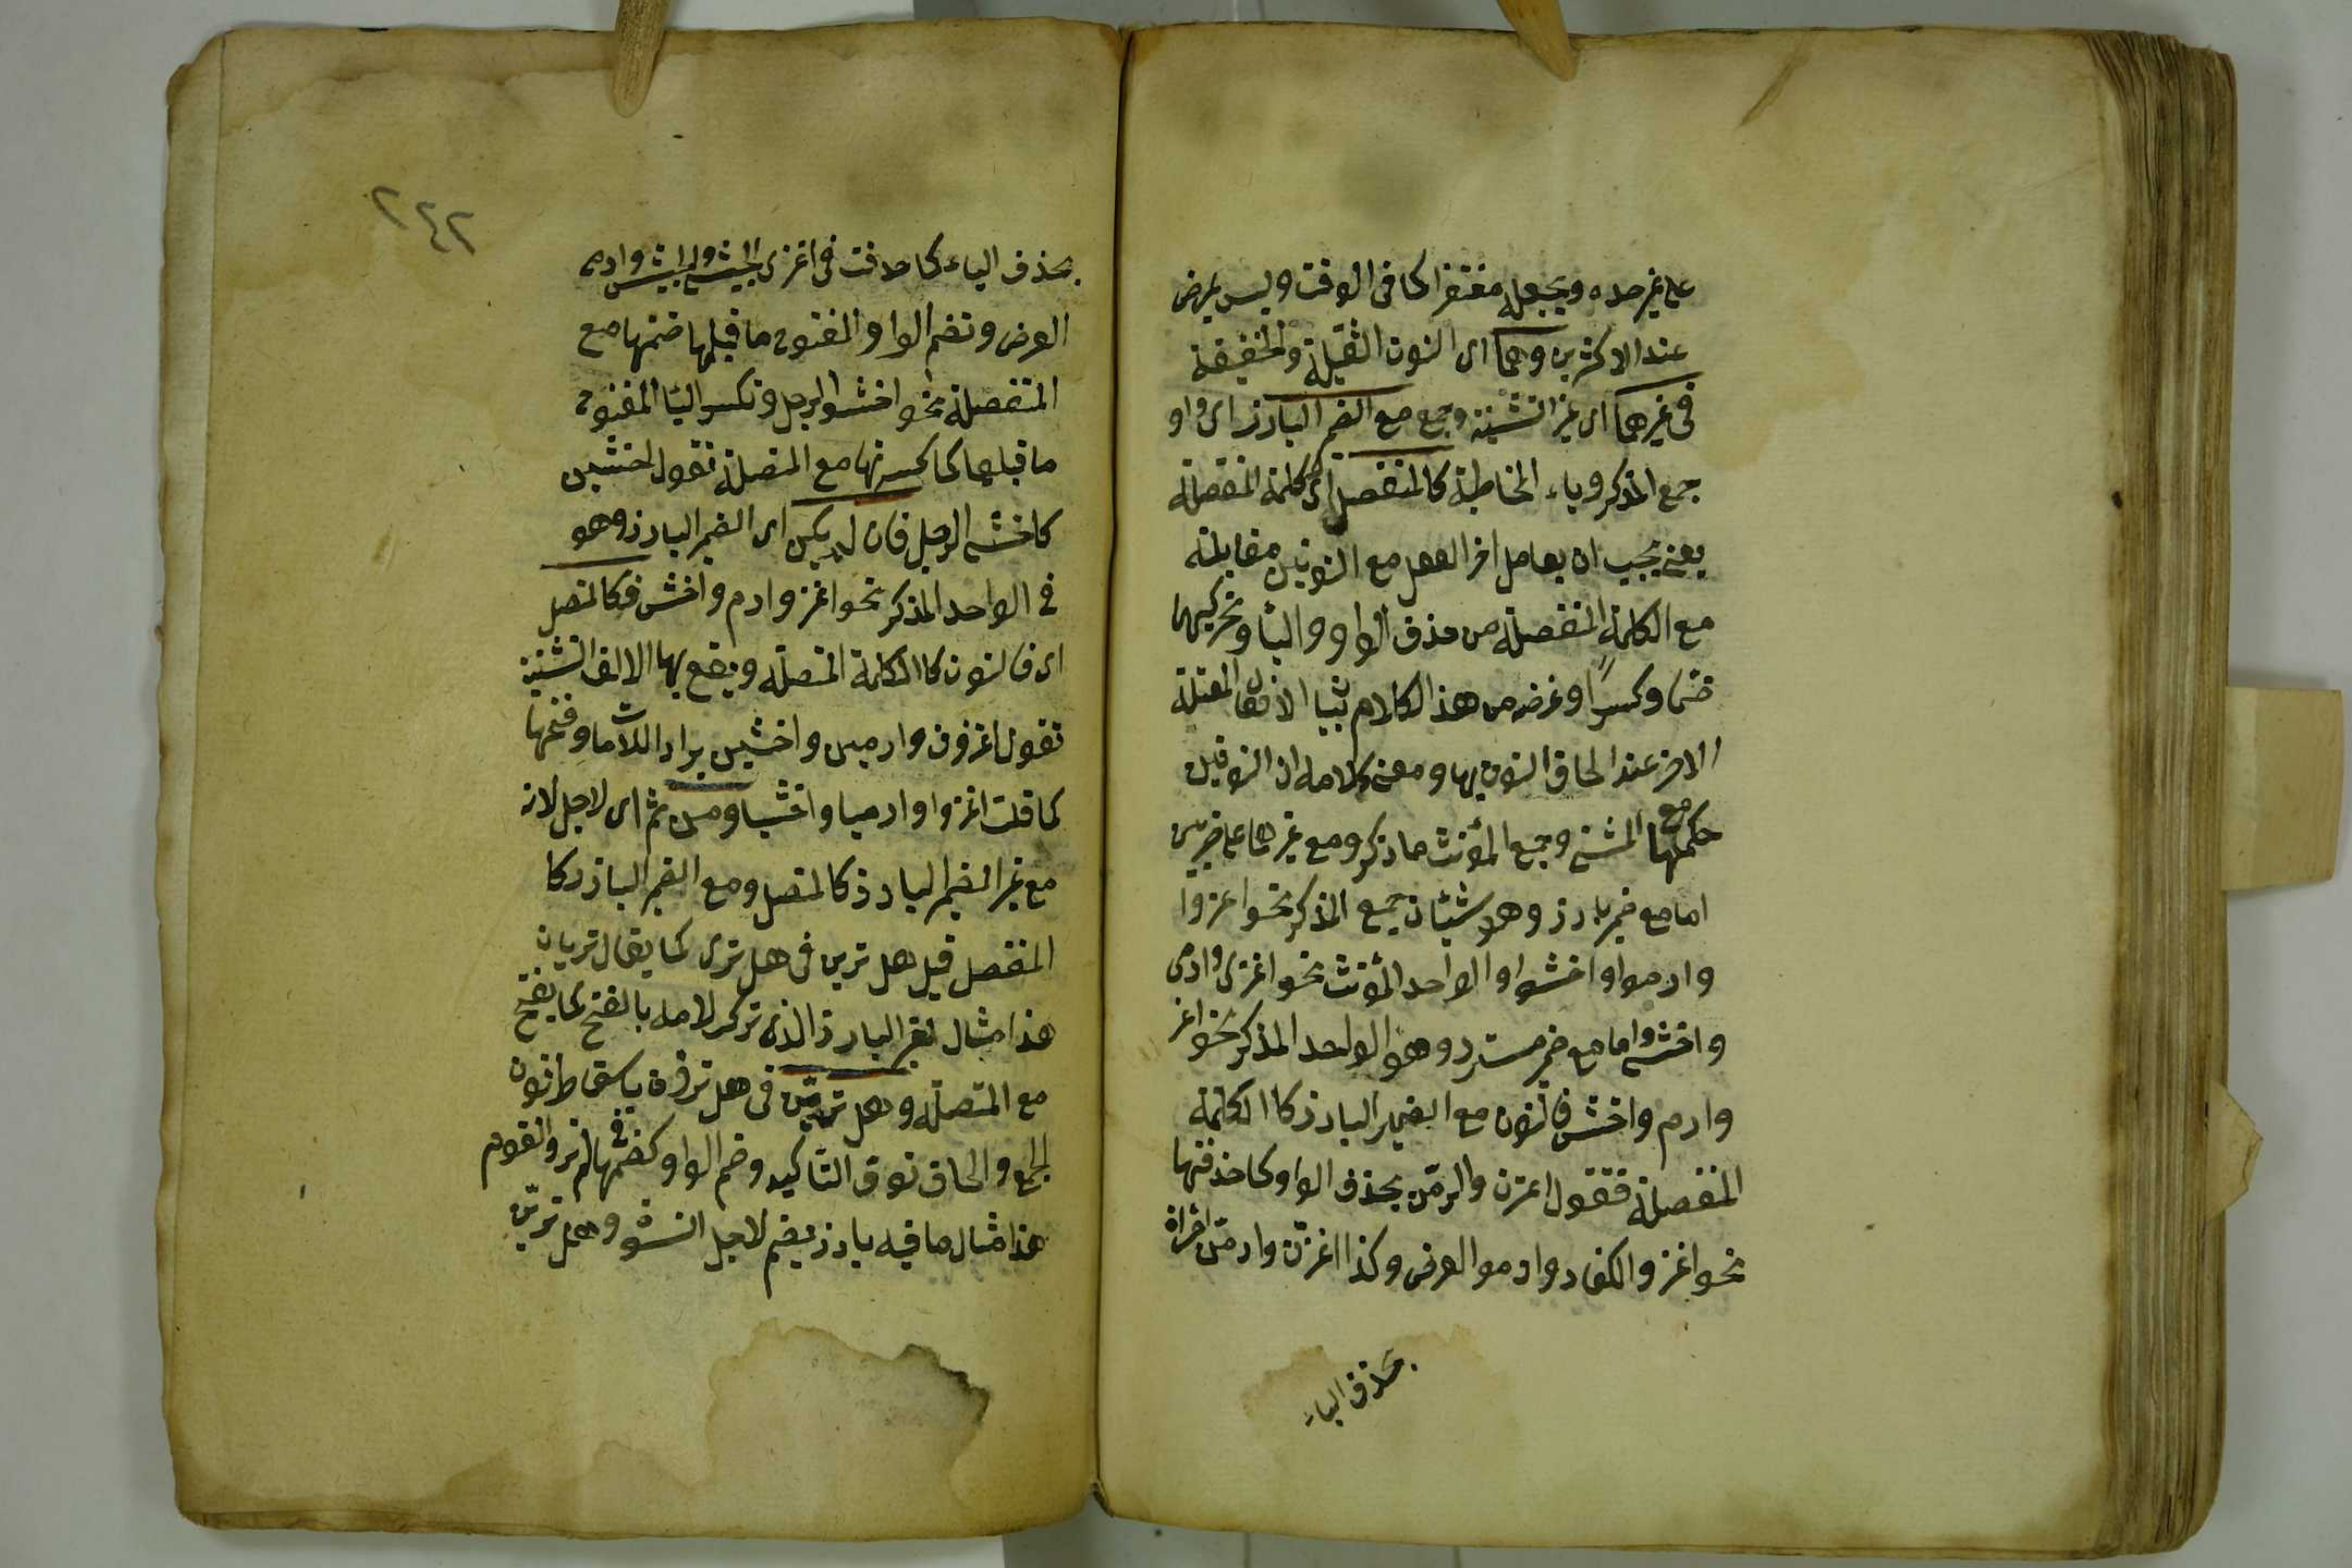 على غير حده ويجعله مغتفرا كما فى الوقف وليس بمرضى
عند الاكثرين وهما اى النون الثقيلة والخفيفة
فى غيرهما اى غير التثنية وجمع مع الضمير البارز اى واو
جمع المذكر وياء المخاطبة كالمنفصل اى كلمة المنفصلة
يعنى يجب ان يعامل اخر الفعل مع النونين معاملته
مع الكلمة المنفصلة من حذف الواو والياء وتحريكهما
ضما وكسرا وغرضه من هذا الكلام بيان الافعال المعتلة
الاخر عند الحاق النون بها ومعنى كلامه ان النونين
حكمهما مع المثنى وجمع المؤنث ما ذكر ومع غيرهما على ضربين
اما مع ضمير بارز وهو شيئان جمع المذكر نحو اغزوا
وارموا واخشوا والواحد المؤنث نحو اغزى وارمى
واخشى واما مع ضمير مستتر وهو الواحد المذكر نحو اغز
وارم واخش فالنون مع الضمير البارز كالكلمة
المنفصلة فتقول اغزن وارمن بحذف الواو كما حذفتها
نحو اغزوا الكفار وارموا الغرض وكذا اغزن وارمن امراة
بحذف الياء
٢٤٢
بحذف الياء كما حذفت فى اغزى الجيش وارمى
الغرض وتضم الواو المفتوح ما قبلها ضمتها مع
المنفصلة نحو اخشوا الرجل وتكسر الياء المفتوح
ما قبلها كما كسرتها مع المنفصلة تقول اخشين
كاخشى الرجل فان لم يكن اى الضمير البارز وهو
فى الواحد المذكر نحو اغز وارم واخش فكالمتصل
اى فالنون كالكلمة المتصلة ويقع بها الالف التثنية
تقول اغزون وارمين واخشين برد اللامات وفتحها
كما قلت اغزوا وارميا واخشيا ومن ثم اى لاجل لان
مع غير الضمير البارز كالمتصل ومع الضمير البارز كا
المنفصل قيل هل ترين فى هل ترى كما يقال تريان
هذا مثال لغير البارز الذى تركر لامه بالفتح كما يفتح
مع المتصلة وهل ترون فى هل ترون باسقاط نون
الجمع والحاق نون التاكيد وضم الواو كضمها فى لم تروا القوم
هذا مثال ما فيه بارز يضم لاجل النون وهل ترين